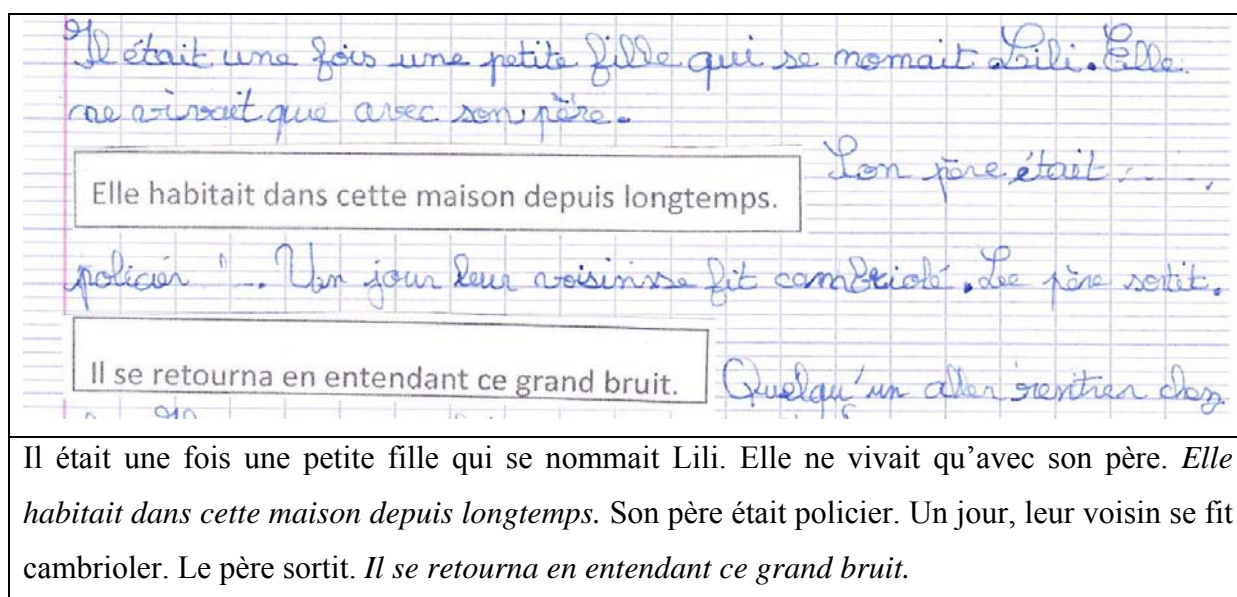 Il était une fois une petite fille qui se nomait Lili. Elle
ne vivait que avec son père.
Elle habitait dans cette maison depuis longtemps.
Son père était
policier. Un jour leur voisin se fit cambriolé. Le père sortit.
Il se retourna en entendant ce grand bruit.
Quelqu'un aller rentrer chez
Il était une fois une petite fille qui se nommait Lili. Elle ne vivait qu’avec son père. Elle
habitait dans cette maison depuis longtemps. Son père était policier. Un jour, leur voisin se fit
cambrioler. Le père sortit. Il se retourna en entendant ce grand bruit.